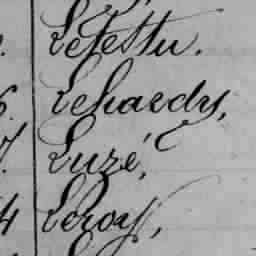 Letestu.
6. Lehardy,
7. Luzé,
4 Leroy,